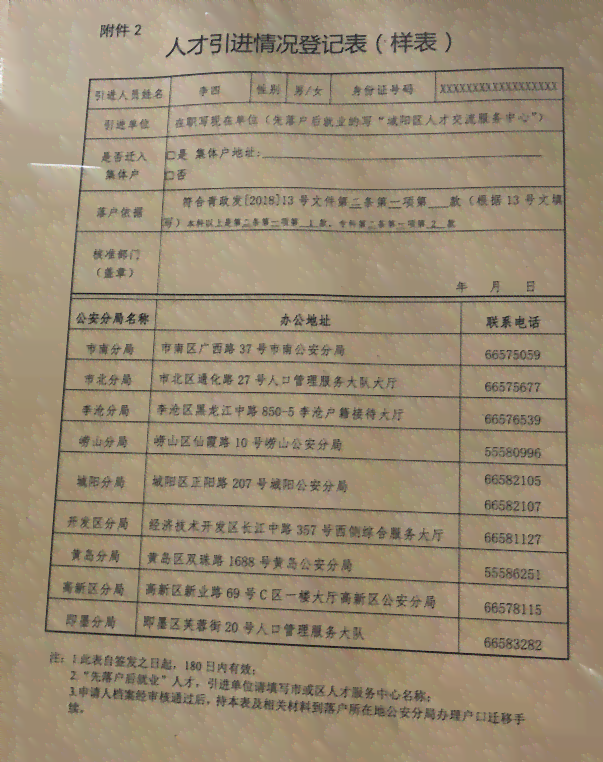 附件2
人才引进情况登记表（样表）
引进人员姓名 李四 性别 男/女 身份证号码 XXXXXXXXXXXXXXXXXX
引进单位 在职写现在单位（先落户后就业的写“城阳区人才交流服务中心”）
是否迁入集体户 □是 集体户地址：
□否
落户依据 符合青政发[2018]13号文件第二条第一项第 款（根据13号文填
写）本科以上是第二条第一项第 1 款，专科第二条第一项第 2 款
核准部门
（盖章）
年 月 日
公安分局名称 办公地址 联系电话
市南分局 市南区广西路37号市南公安分局 66575059
市北分局 市北区通化路27号人口管理服务大队大厅 66575677
李沧分局 李沧区黑龙江中路850-5李沧户籍接待大厅 66576539
崂山分局 崂山区仙霞路10号崂山公安分局 55580996
城阳分局 城阳区正阳路207号城阳公安分局 66582105
66582107
开发区分局 经济技术开发区长江中路357号西侧综合服务大厅 66581127
黄岛分局 黄岛区双珠路1688号黄岛公安分局 55586251
高新区分局 高新区新业路69号C区一楼大厅高新区公安分局 66578115
即墨分局 即墨区芙蓉街20号人口管理服务大队 66583282
注：1.此表自签发之日起，180日内有效；
2.“先落户后就业”人才，引进单位请填写市或区人才服务中心名称；
3.申请人档案经审核通过后，持本表及相关材料到落户所在地公安分局办理户口迁移手
续。